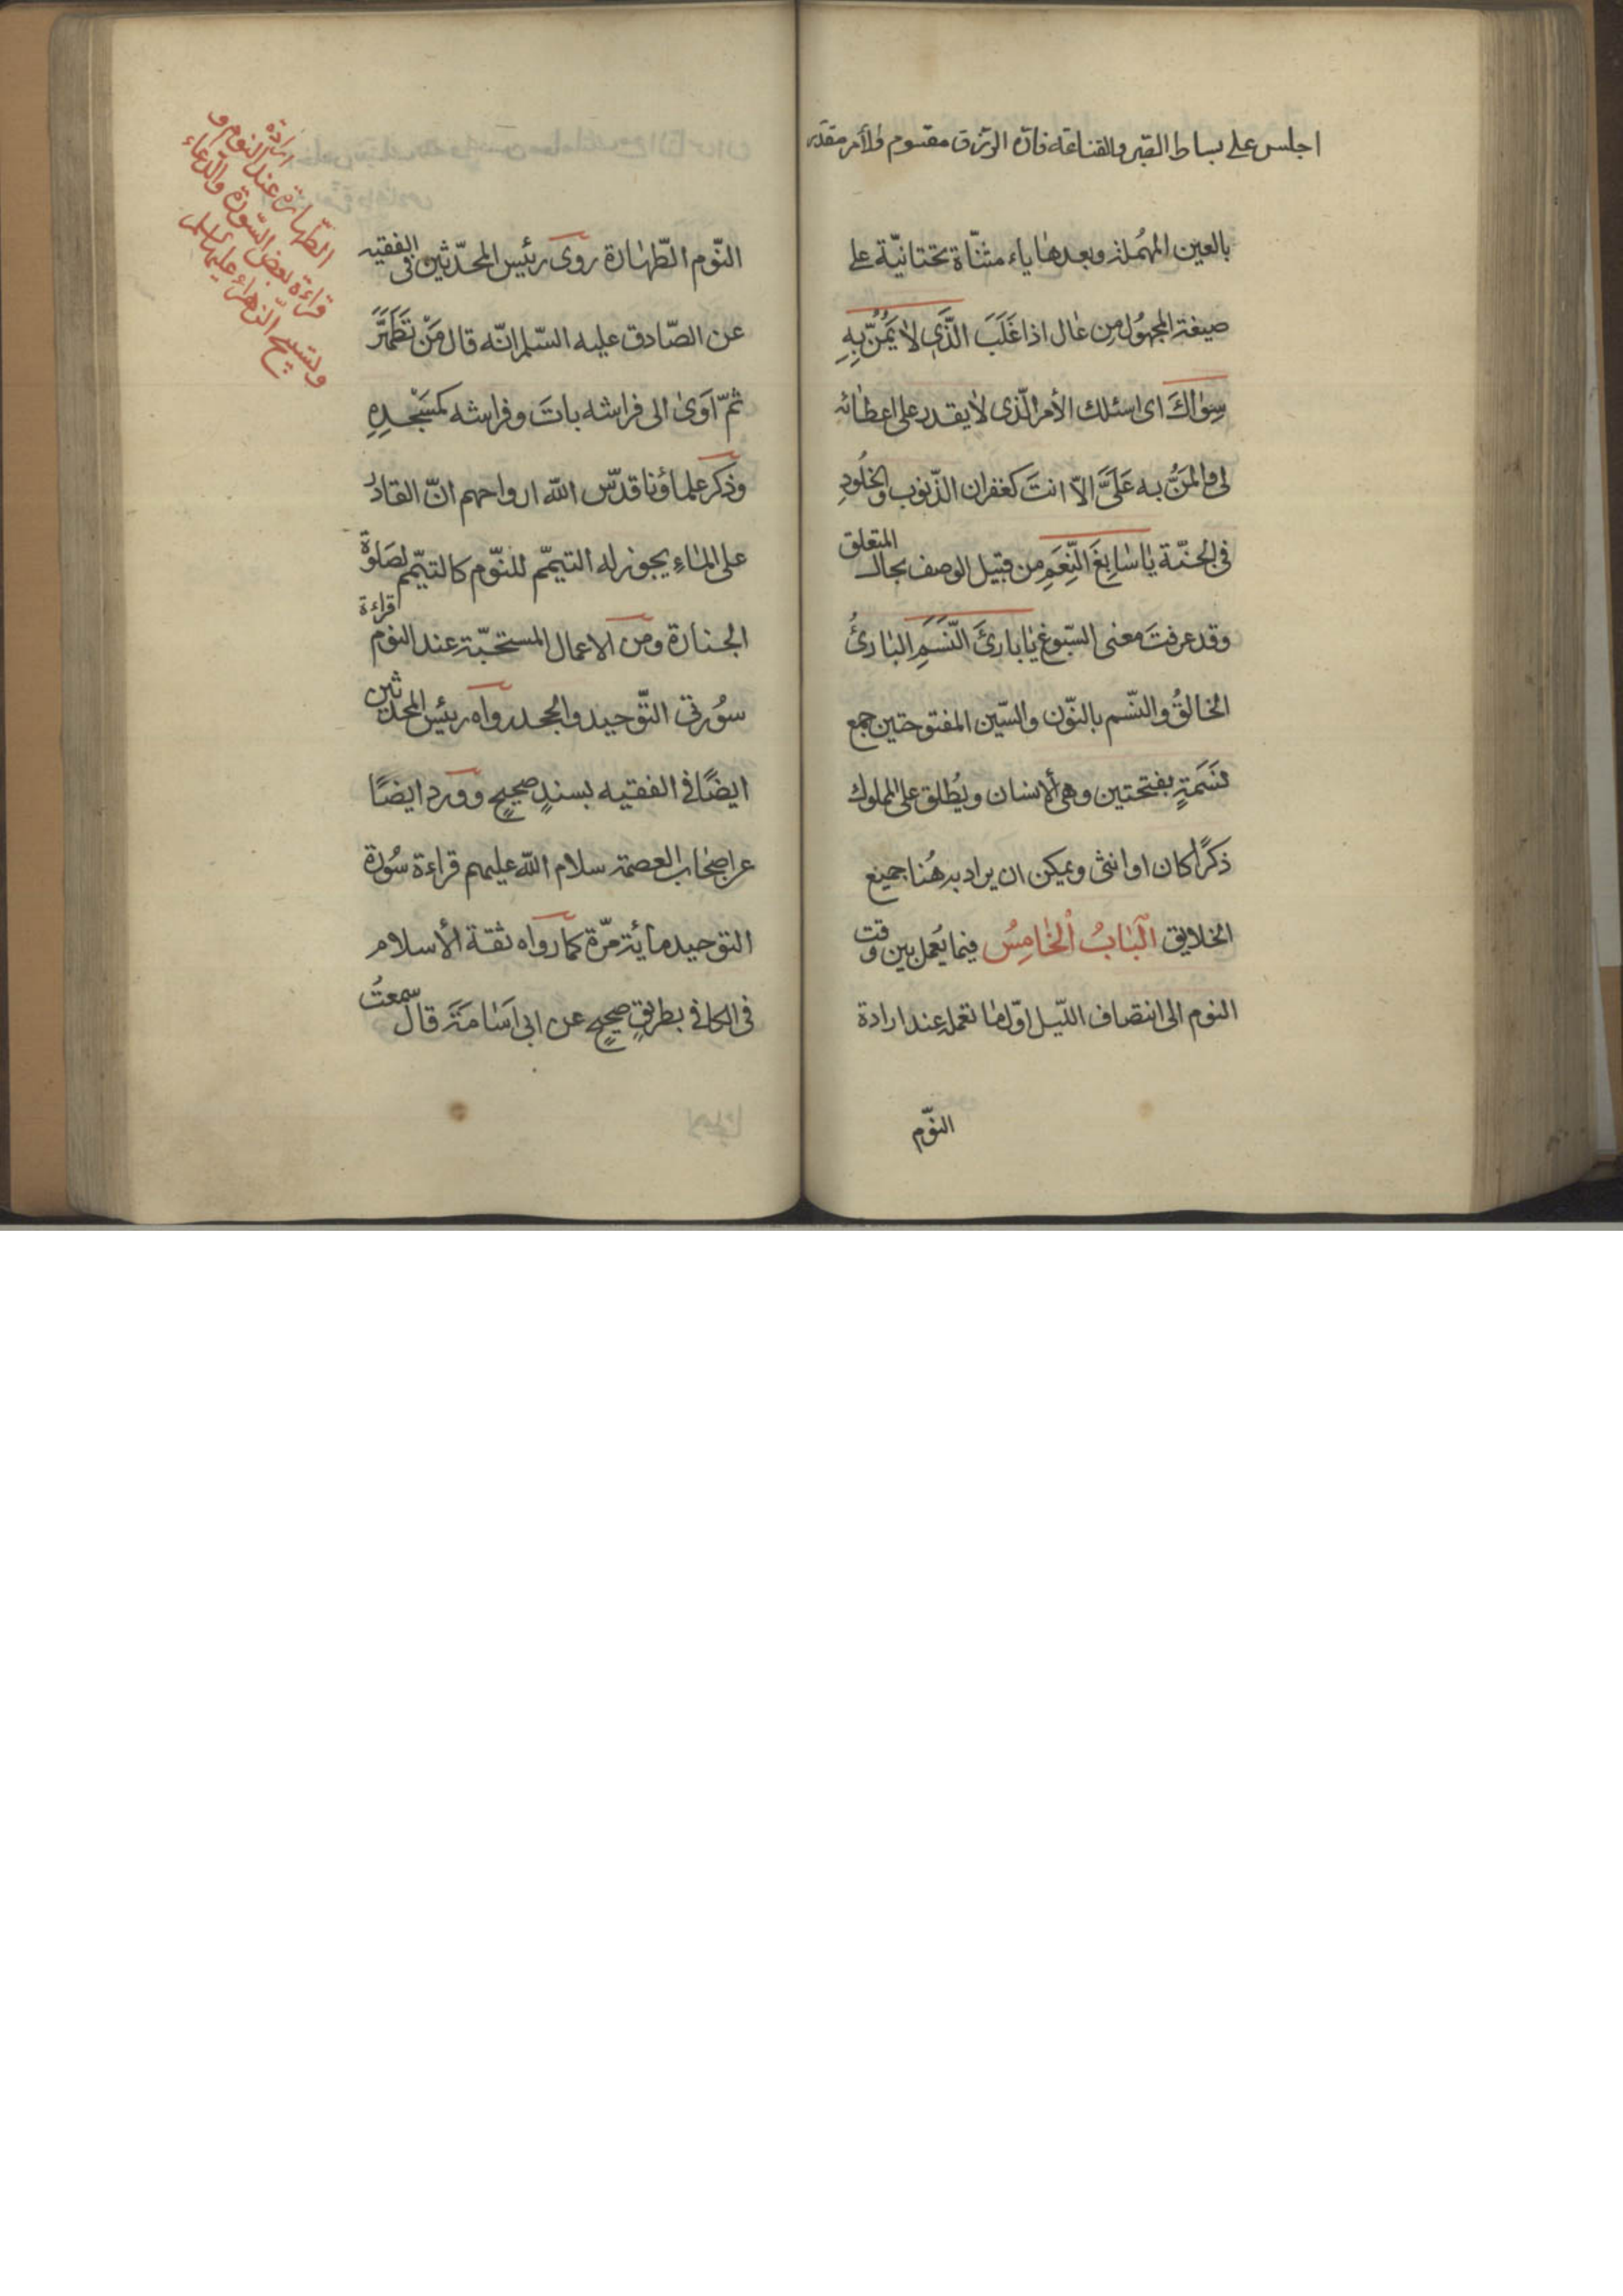 اجلس على بساط الصبر والقناعة فانّ الرّزق مقسوم والأمر مقدّر
بالعين المهُملة وبعدها ياء مثنّاة تحتانيّة على
صيغة المجهُول من عال اذا غَلَبَ الَّذَى لا يَمُنُّ بِهِ
سِوٰاكَ اى اسئلك الأمر الّذى لا يقدر على اعطائه
لى والمَنُّ به عَلَىَّ الاّ انتَ كغفران الذّنوب والخُلُودِ
فى الجنّة يٰا سٰابِغَ النِّعَمِ من قبيل الوصف بحال المتعلق
وقد عرفتَ معنى السّبوغ يٰا بارئَ النَّسَمِ البٰارئُ
الخالقُ والنّسم بالنّون والسّين المفتوحتين جمع
نَسَمَةٍ بفتحتين وهى ألانسان ويُطلق على المملوك
ذكرًا كان او انثى ويمكن ان يراد به هُنا جميع
الخلايق اَلْبٰابُ اْلخٰامِسُ فيما يُعمل بين وقت
النوم الى انتصاف اللّيل اوّل ما تعمله عند ارادة
النّوم
النّوم الطّهٰارة روى رئيس المحدّثين فى الفقيه
عن الصّادق عليه السّلم انّه قال مَنْ تَطَهَّرَ
ثمّ آوىٰ الى فراشه باتَ وفراشه كمَسْجِدِهِ
وذكر علماؤنا قدّس الله ارواحهم انّ القادرُ
على المٰاءِ يجوز له التيمّم للنّوم كالتيمّم لصَلوة
الجنازة ومن الاعمال المستحبّة عند النوم قراءة
سوُرتى التّوحيد والجحد رواه رئيس المحدثين
ايضًا فى الفقيه بسندٍ صحيحٍ وورد ايضًا
عن اصحاب العصمة سلام الله عليهم قراءة سوُرة
التوحيد مائة مرّة كما رواه ثقة الأسلام
فى الكافى بطريقٍ صحيحٍ عن ابى اسٰامَة قال سمعتُ
ارادة
الطّهارة عند النوم و
قراءة بعض السّورة والدّعاء
وتسبيح الزهراء عليها السّلم